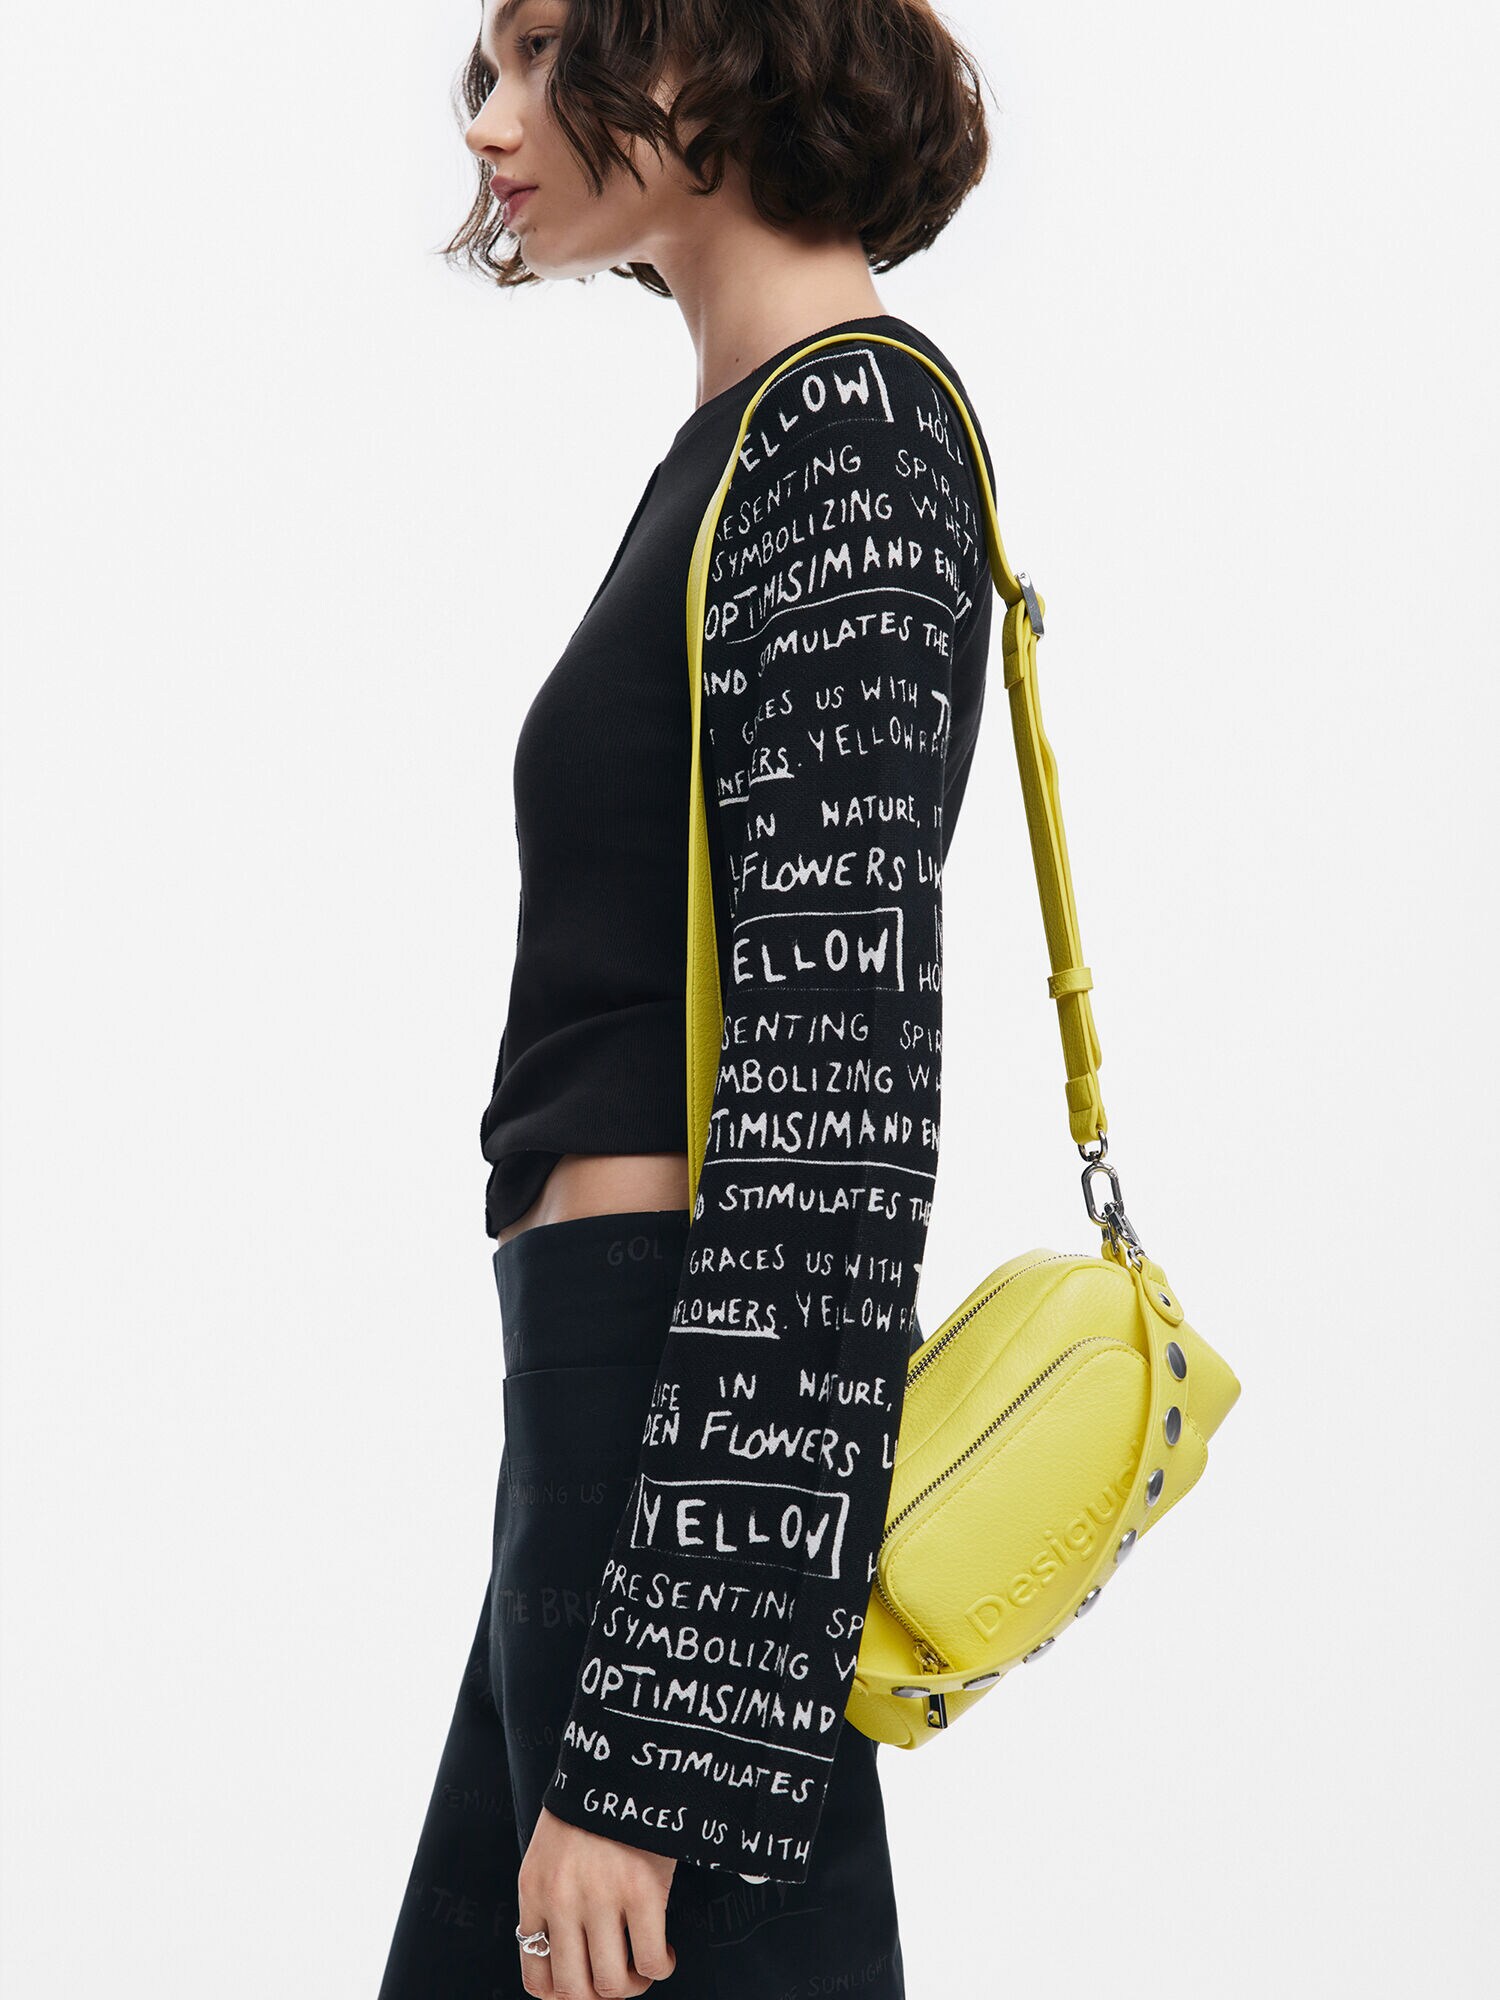 ELLOW
HOLL
ESENTING SPIRIT
SYMBOLIZING WHET
OPTIMISIMAND ENL
AND STIMULATES THE
T GRACES US WITH
INFL ERS. YELLOW RA
IN NATURE, IT
FLOWERS LIK
ELLOW
HO
SENTING SPIR
MBOLIZING W
OPTIMISIMAND EN
D STIMULATES THE
GRACES US WITH
FLOWERS. YELLOW RA
LIFE IN NATURE,
DEN FLOWERS L
YELLOW
PRESENTING SP
SYMBOLIZING W
OPTIMISIMAND
AND STIMULATES
IT GRACES US WITH
Desigual
GOL
NDING US
THE BRI
ELLO
REMINS
THE F
SUNLIGHT